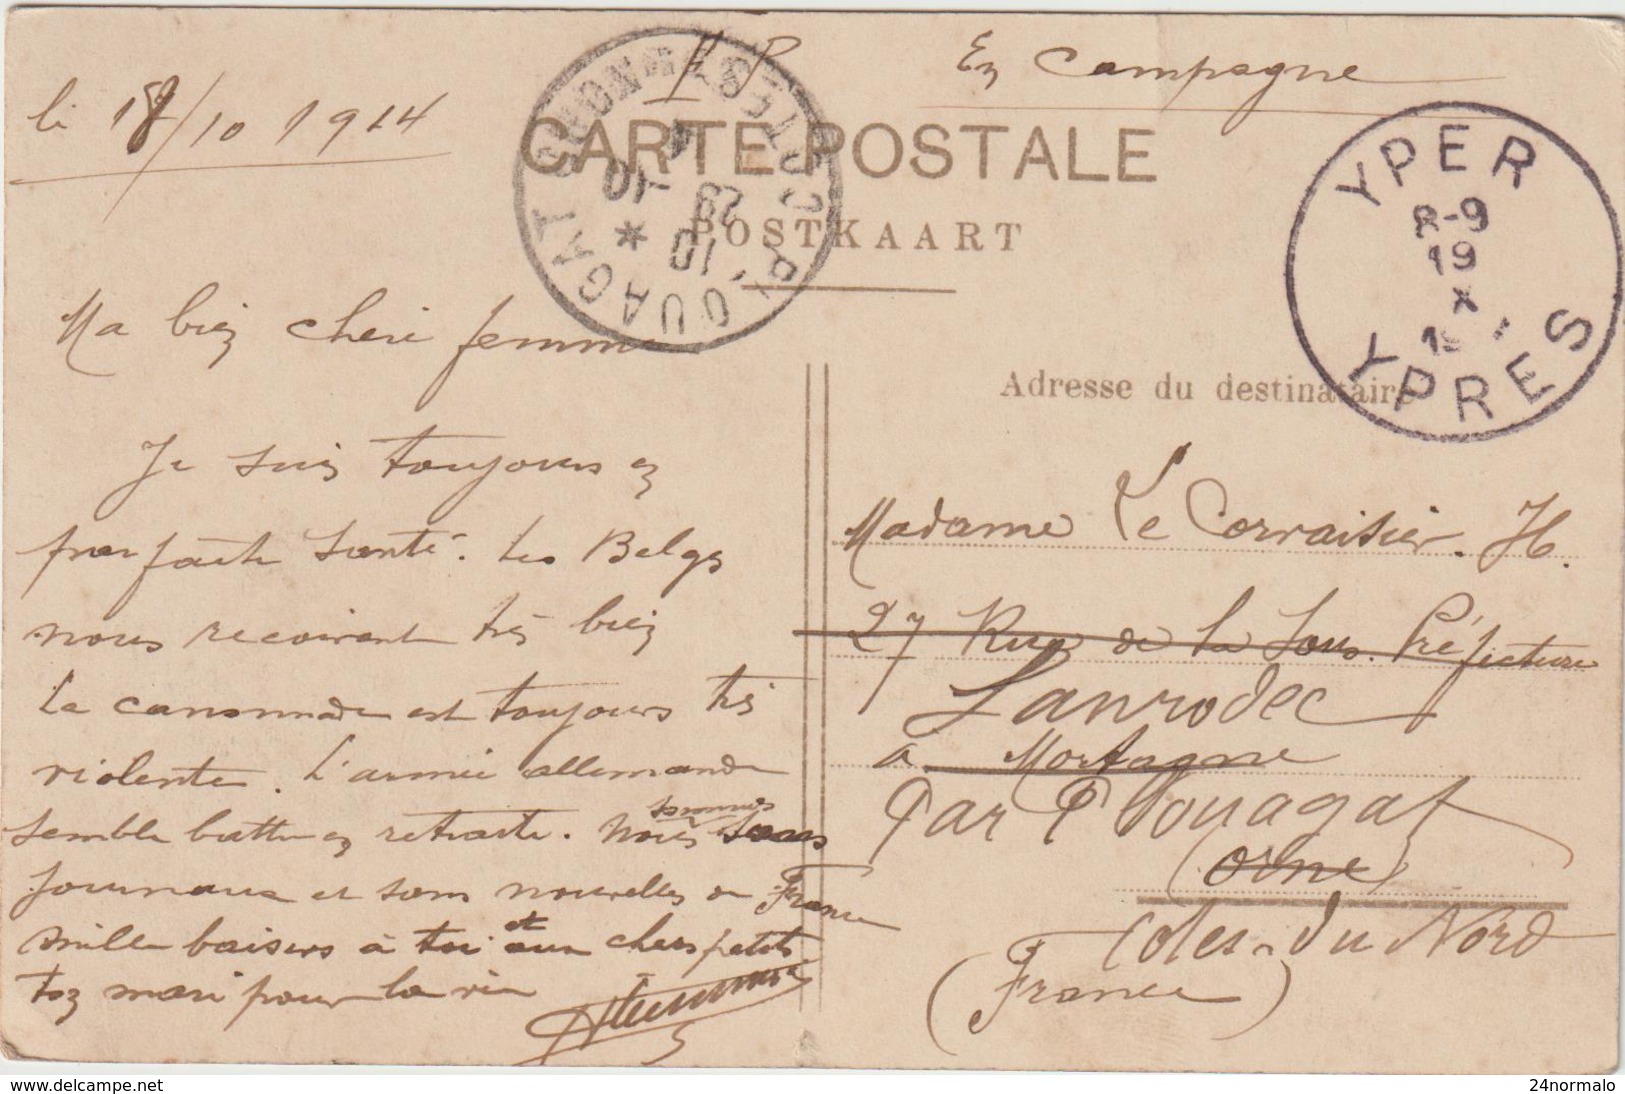 F P En Campagne
le 18/10 1914
CARTE POSTALE
POSTKAART
YPER
8-9
19
X
YPRES
PLOUAGAT
COTES DU NORD
10
29 10
14
Ma bien cheri femme
Adresse du destinataire
Je suis toujours en
parfaite santé. Les Belges
nous recoivent très bien
La canonnade est toujours très
violente. L'armée allemande
semble battre en retraite. Nous sommes
sans
journaux et sans nouvelles de France
mille baisers à toi et aux chers petits
ton mari pour la vie
Madame Le Corvaisier. H.
27 Rue de la Sous-Préfecture
Lanrodec
à Mortagne
Par Plouagat
(Orne)
Cotes-du Nord
(France)
www.delcampe.net
24normalo